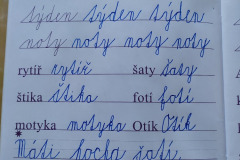 týden týden týden
noty noty noty noty
rytíř rytíř šaty šaty
štika štika fotí fotí
motyka motyka Otík Otík
Máti fotí.